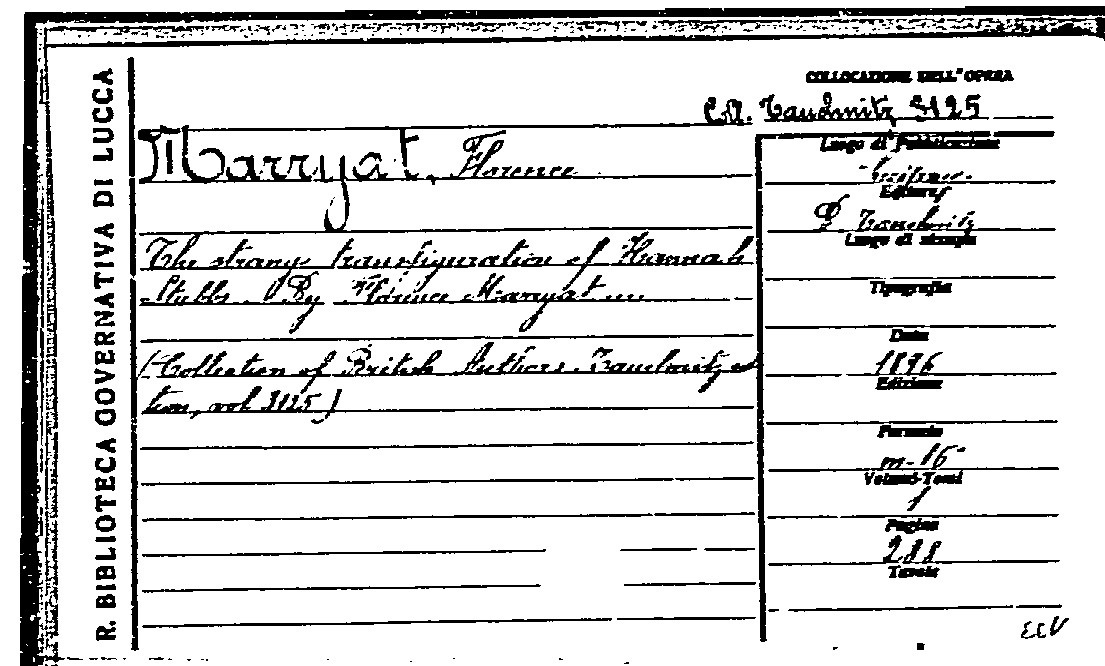 R. BIBLIOTECA GOVERNATIVA DI LUCCA
COLLOCAZIONE DELL'OPERA
Tauchnitz 3125
Marryat, Florence
The strange transfiguration of Hannah
Stubbs. By Florence Marryat ...
(Collection of British Authors. Tauchnitz edi
tion, vol 3125)
Luogo di Pubblicazione
Leipzig
Editore
B. Tauchnitz
Luogo di stampa
Tipografia
Data
1896
Edizione
Formato
in-16°
Volumi-Tomi
1
Pagine
288
Tavole